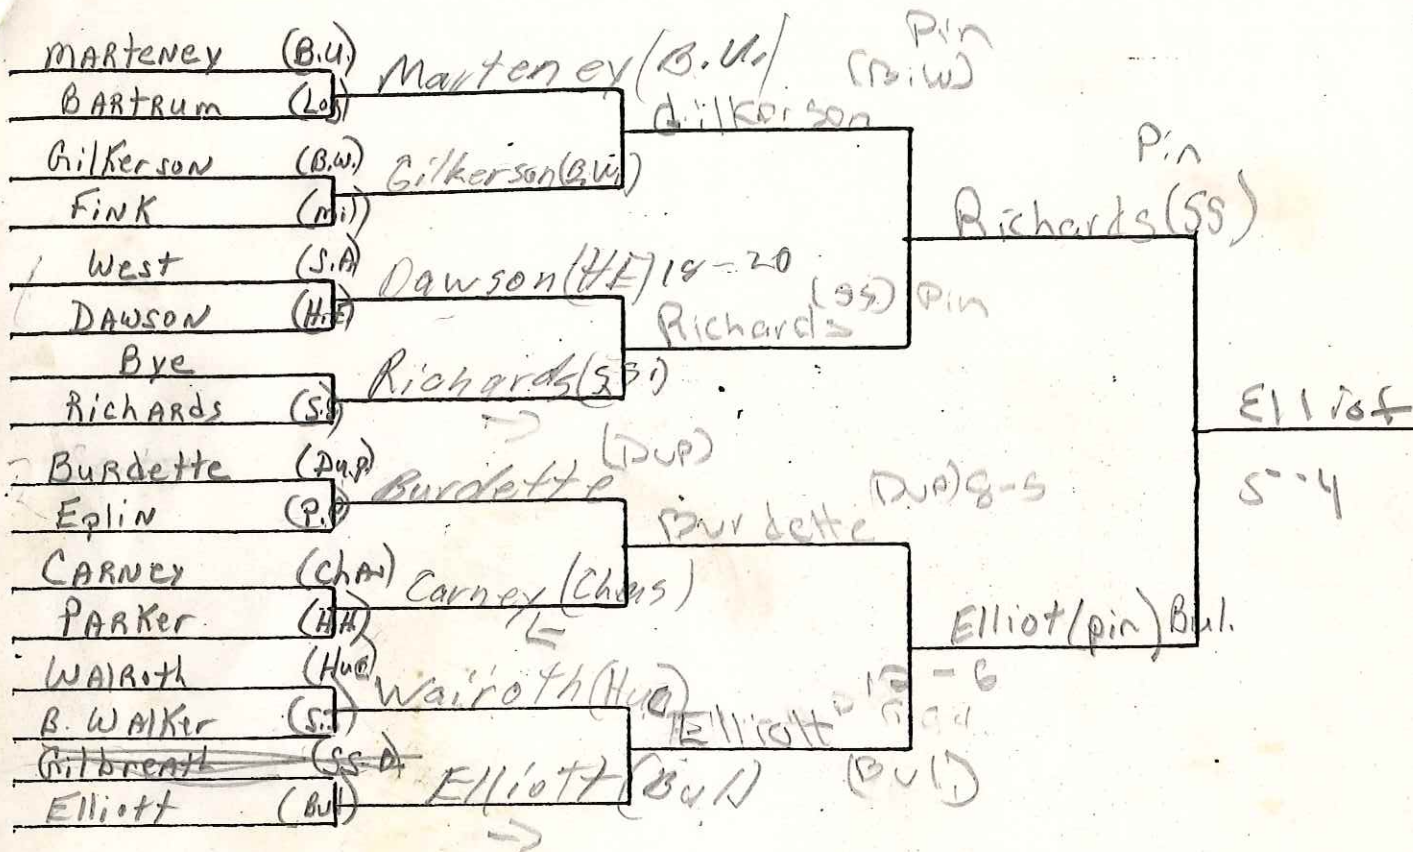 MARteNey (B.U.)
BARtRum (Los)
GilKerson (B.W.)
FiNK (Mi)
West (S.A)
DAWSON (H.E)
Bye
RichARds (S.S)
BuRdette (Du.P)
EpliN (P.P)
CARNey (ChAs)
PARKer (HH)
WAlRoth (Hun)
B. WAlKeR
Gilbreath (SS A)
Elliott (Bul)
Marteney (B.U.)
Gilkerson (B.W.)
Dawson (HE) 18-20
Richards (S.S.)
Burdette (DuP)
Carney (Chas)
Walroth (Hun)
Elliott (Bul)
Gilkerson (B.W) Pin
Richards (SS) Pin
Burdette (DuP) 8-5
Elliott (Bul) 12-6
Richards (SS) Pin
Elliot (pin) Bul.
Elliot
5--4